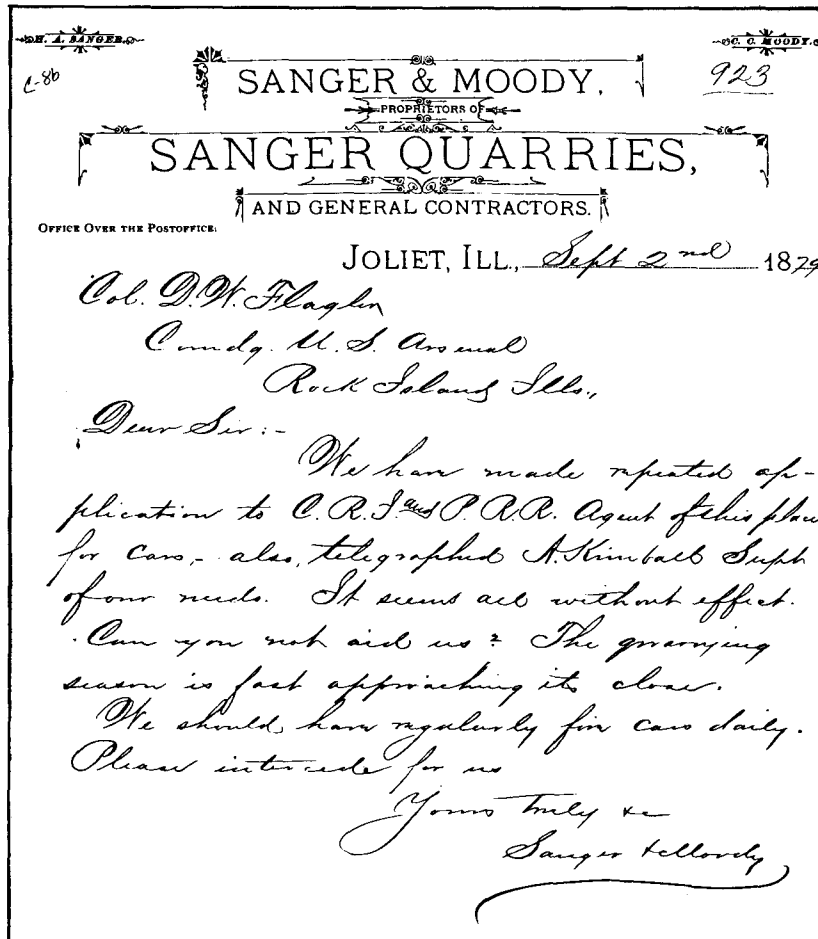 H. A. SANGER.
C. C. MOODY.
C-86
923
SANGER & MOODY,
PROPRIETORS OF
SANGER QUARRIES,
AND GENERAL CONTRACTORS.
OFFICE OVER THE POSTOFFICE.
JOLIET, ILL., Sept 2nd 1879
Col. D. W. Flagler
Comdg. U. S. Arsenal
Rock Island Ills.,
Dear Sir:-
We have made repeated ap-
plication to C. R. I. and P. R. R. Agent of this place
for cars,- also, telegraphed A. Kimball Supt
of our needs. It seems all without effect.
Can you not aid us? The quarrying
season is fast approaching its close.
We should have regularly five cars daily.
Please intercede for us
Yours Truly &c
Sanger & Moody